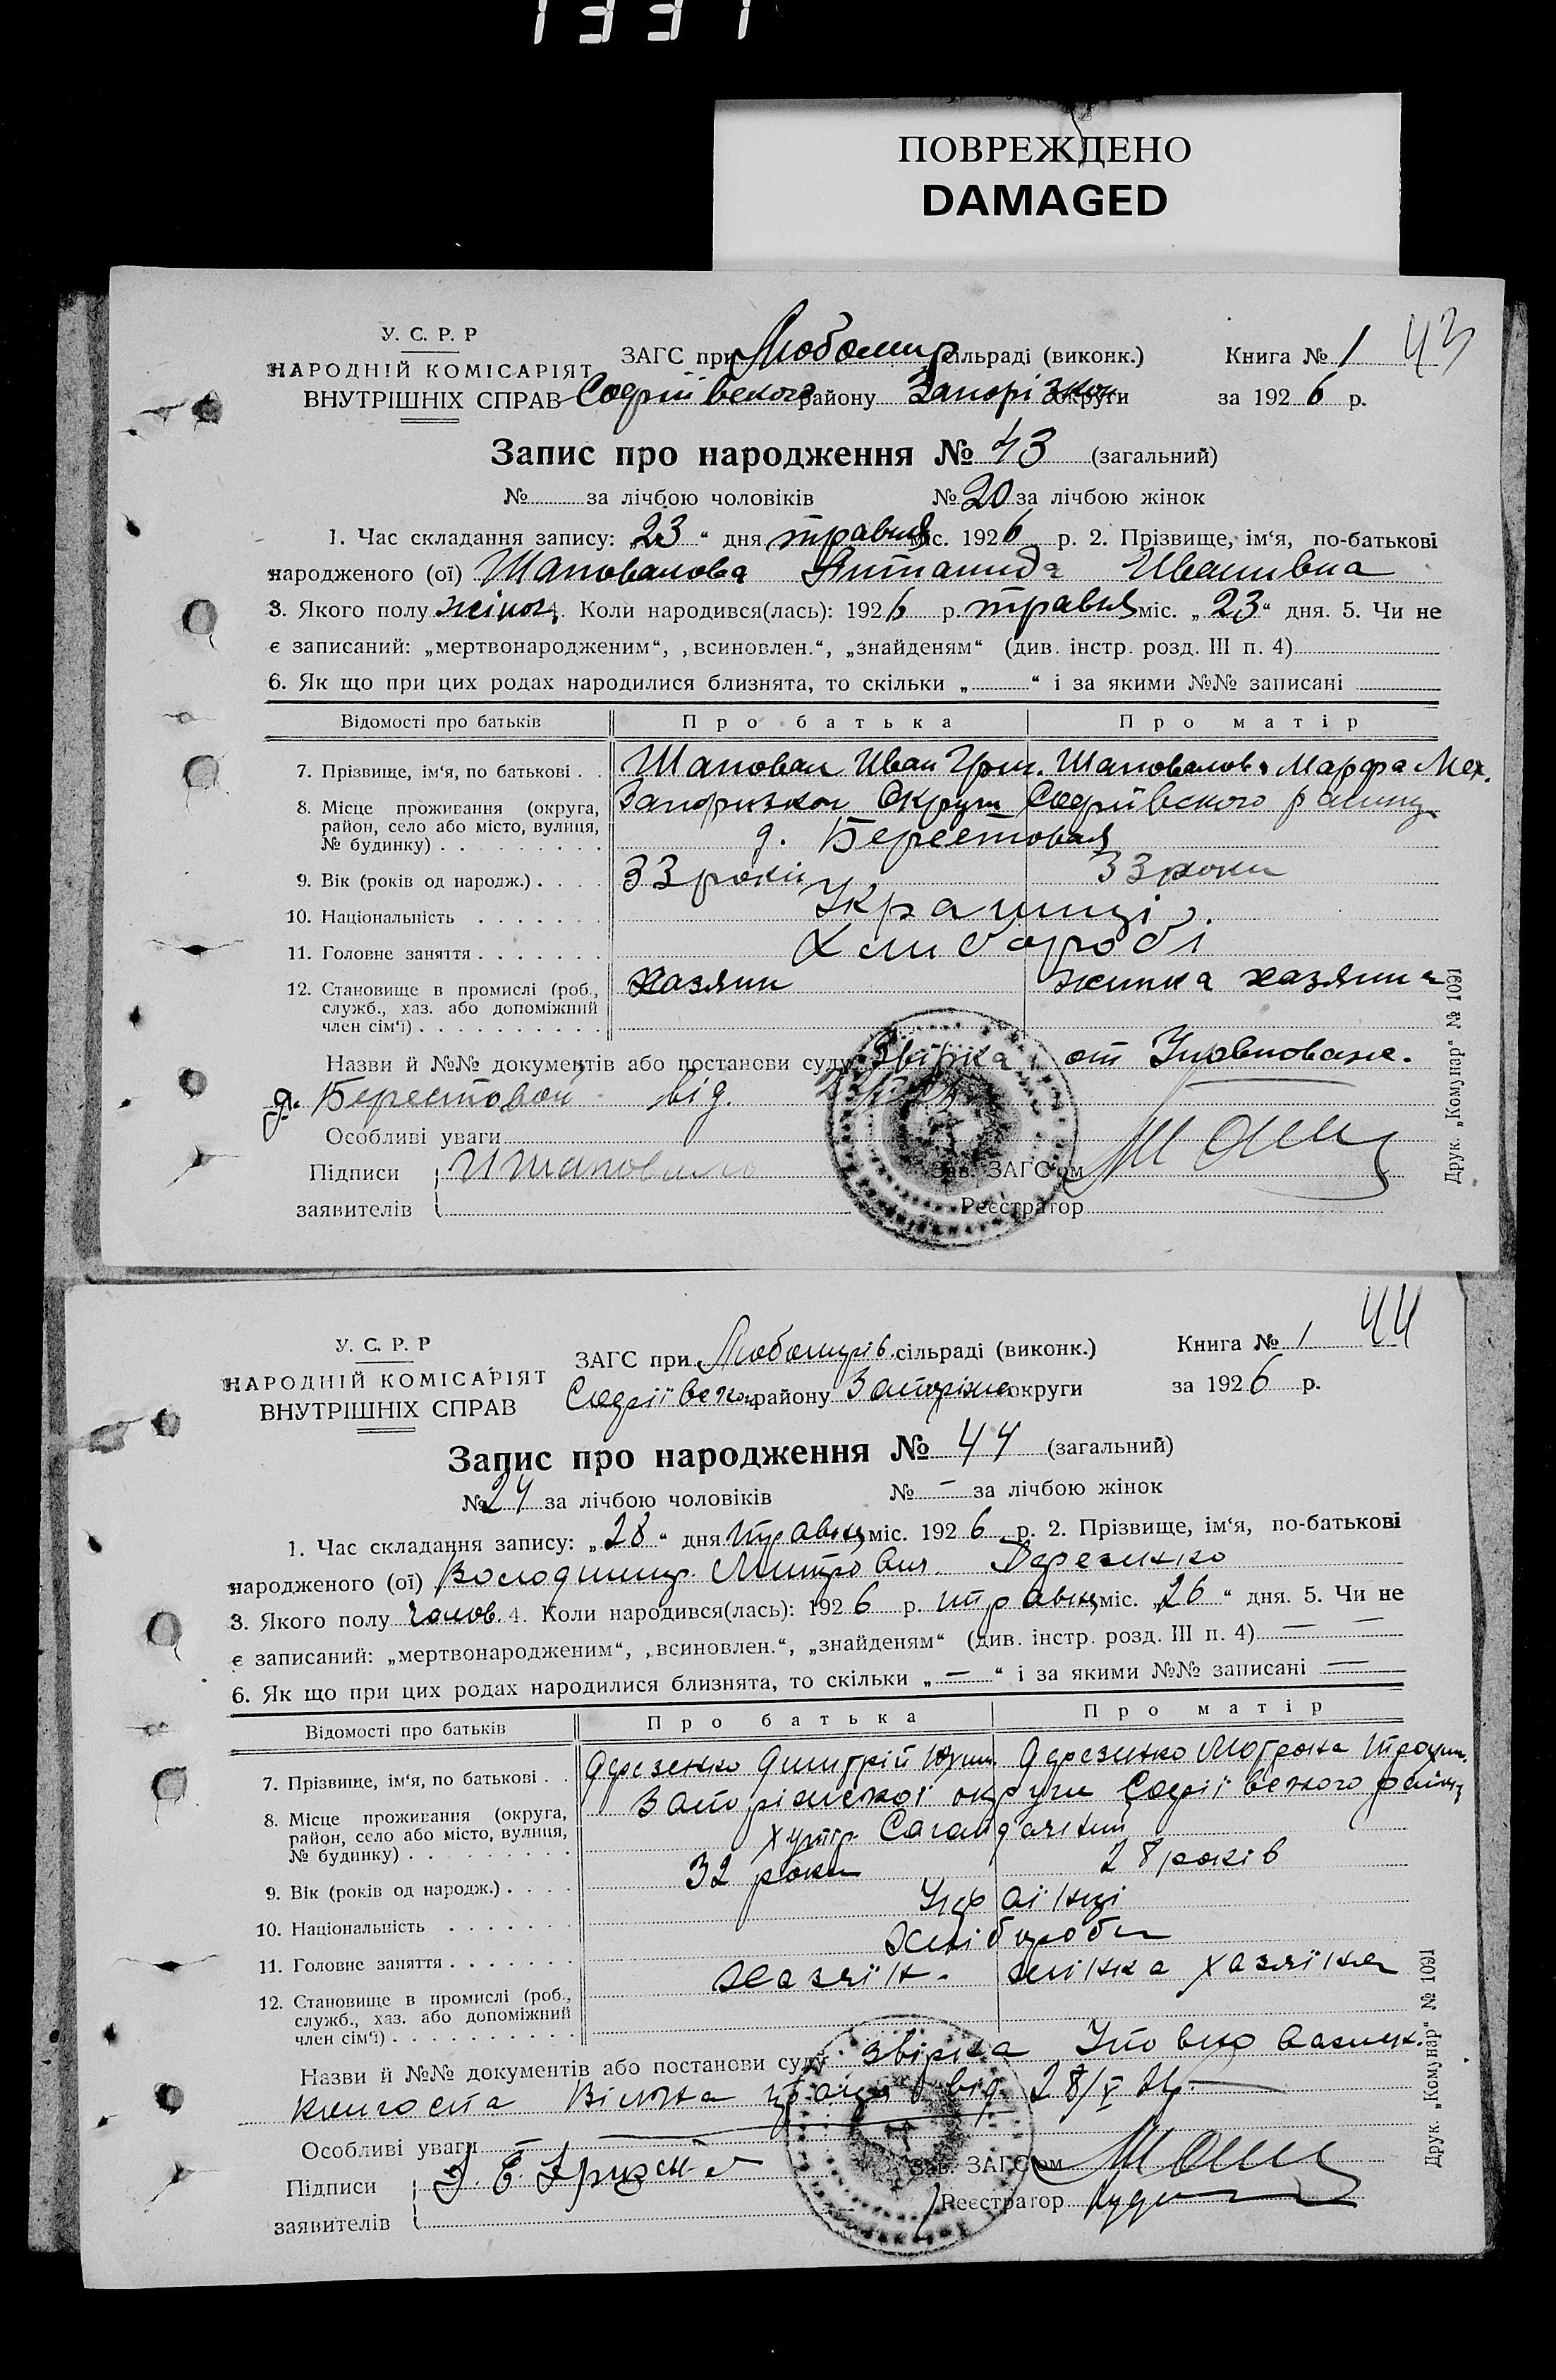 1337
ПОВРЕЖДЕНО
DAMAGED
У. С. Р. Р
НАРОДНІЙ КОМІСАРІЯТ
ВНУТРІШНІХ СПРАВ
ЗАГС при Любомир сільраді (виконк.)
Софіївського району Запорізкои округи
Книга № 1
43
за 1926 р.
Запис про народження № 43 (загальний)
№ за лічбою чоловіків № 20 за лічбою жінок
1. Час складання запису: „23“ дня травня міс. 1926 р. 2. Прізвище, ім‘я, по-батькові
народженого (ої) Шаповалова Иванивна
3. Якого полу жіноч. 4. Коли народився(лась): 1926 р. травня міс. „23“ дня. 5. Чи не
є записаний: „мертвонародженим“, „всиновлен.“, „знайденям“ (див. інстр. розд. III п. 4)
6. Як що при цих родах народилися близнята, то скільки „ “ і за якими №№ записані
Відомості про батьків Про батька Про матір
7. Прізвище, ім‘я, по батькові . . Шаповал Иван Григ. Шаповалова Марфа Мех.
8. Місце проживання (округа, район, село або місто, вулиця, № будинку) Запоризкои Округи Софіївского району
д. Берестовая
9. Вік (років од народж.) . . . . 33 роки 33 роки
10. Національність . . . . . . . Украинці
11. Головне заняття . . . . . . . Хлибороби
12. Становище в промислі (роб., служб., хаз. або допоміжний член сім‘ї) хазяин жинка хазяина
Назви й №№ документів або постанови суду Звірка от Уповноваже.
д. Берестовой від
Особливі уваги
Підписи Шаповало Зав. ЗАГС‘ом
заявителів Реєстратор
Друк. „Комунар“ № 1091
У. С. Р. Р
НАРОДНІЙ КОМІСАРІЯТ
ВНУТРІШНІХ СПРАВ
ЗАГС при Любомирів. сільраді (виконк.)
Софіївськ району Запоріжс округи
Книга № 1
44
за 1926 р.
Запис про народження № 44 (загальний)
№ 24 за лічбою чоловіків № — за лічбою жінок
1. Час складання запису: „28“ дня травня міс. 1926 р. 2. Прізвище, ім‘я, по-батькові
народженого (ої) Володимир Дмитрович
3. Якого полу чолов. 4. Коли народився(лась): 1926 р. травня міс. „26“ дня. 5. Чи не
є записаний: „мертвонародженим“, „всиновлен.“, „знайденям“ (див. інстр. розд. III п. 4) —
6. Як що при цих родах народилися близнята, то скільки „—“ і за якими №№ записані —
Відомості про батьків Про батька Про матір
7. Прізвище, ім‘я, по батькові . . Дмитрій Мотрона Трохим.
8. Місце проживання (округа, район, село або місто, вулиця, № будинку) Запоріжської округи Софіївського району
хутір Сагайдачний
9. Вік (років од народж.) . . . . 32 роки 28 років
10. Національність . . . . . . . Українці
11. Головне заняття . . . . . . . Хлібороби
12. Становище в промислі (роб., служб., хаз. або допоміжний член сім‘ї) Хазяїн. жінка хазяїна
Назви й №№ документів або постанови суду звірка
від 28/V 26р.
Особливі уваги —
Підписи Зав. ЗАГС‘ом
заявителів Реєстратор
Друк. „Комунар“ № 1091